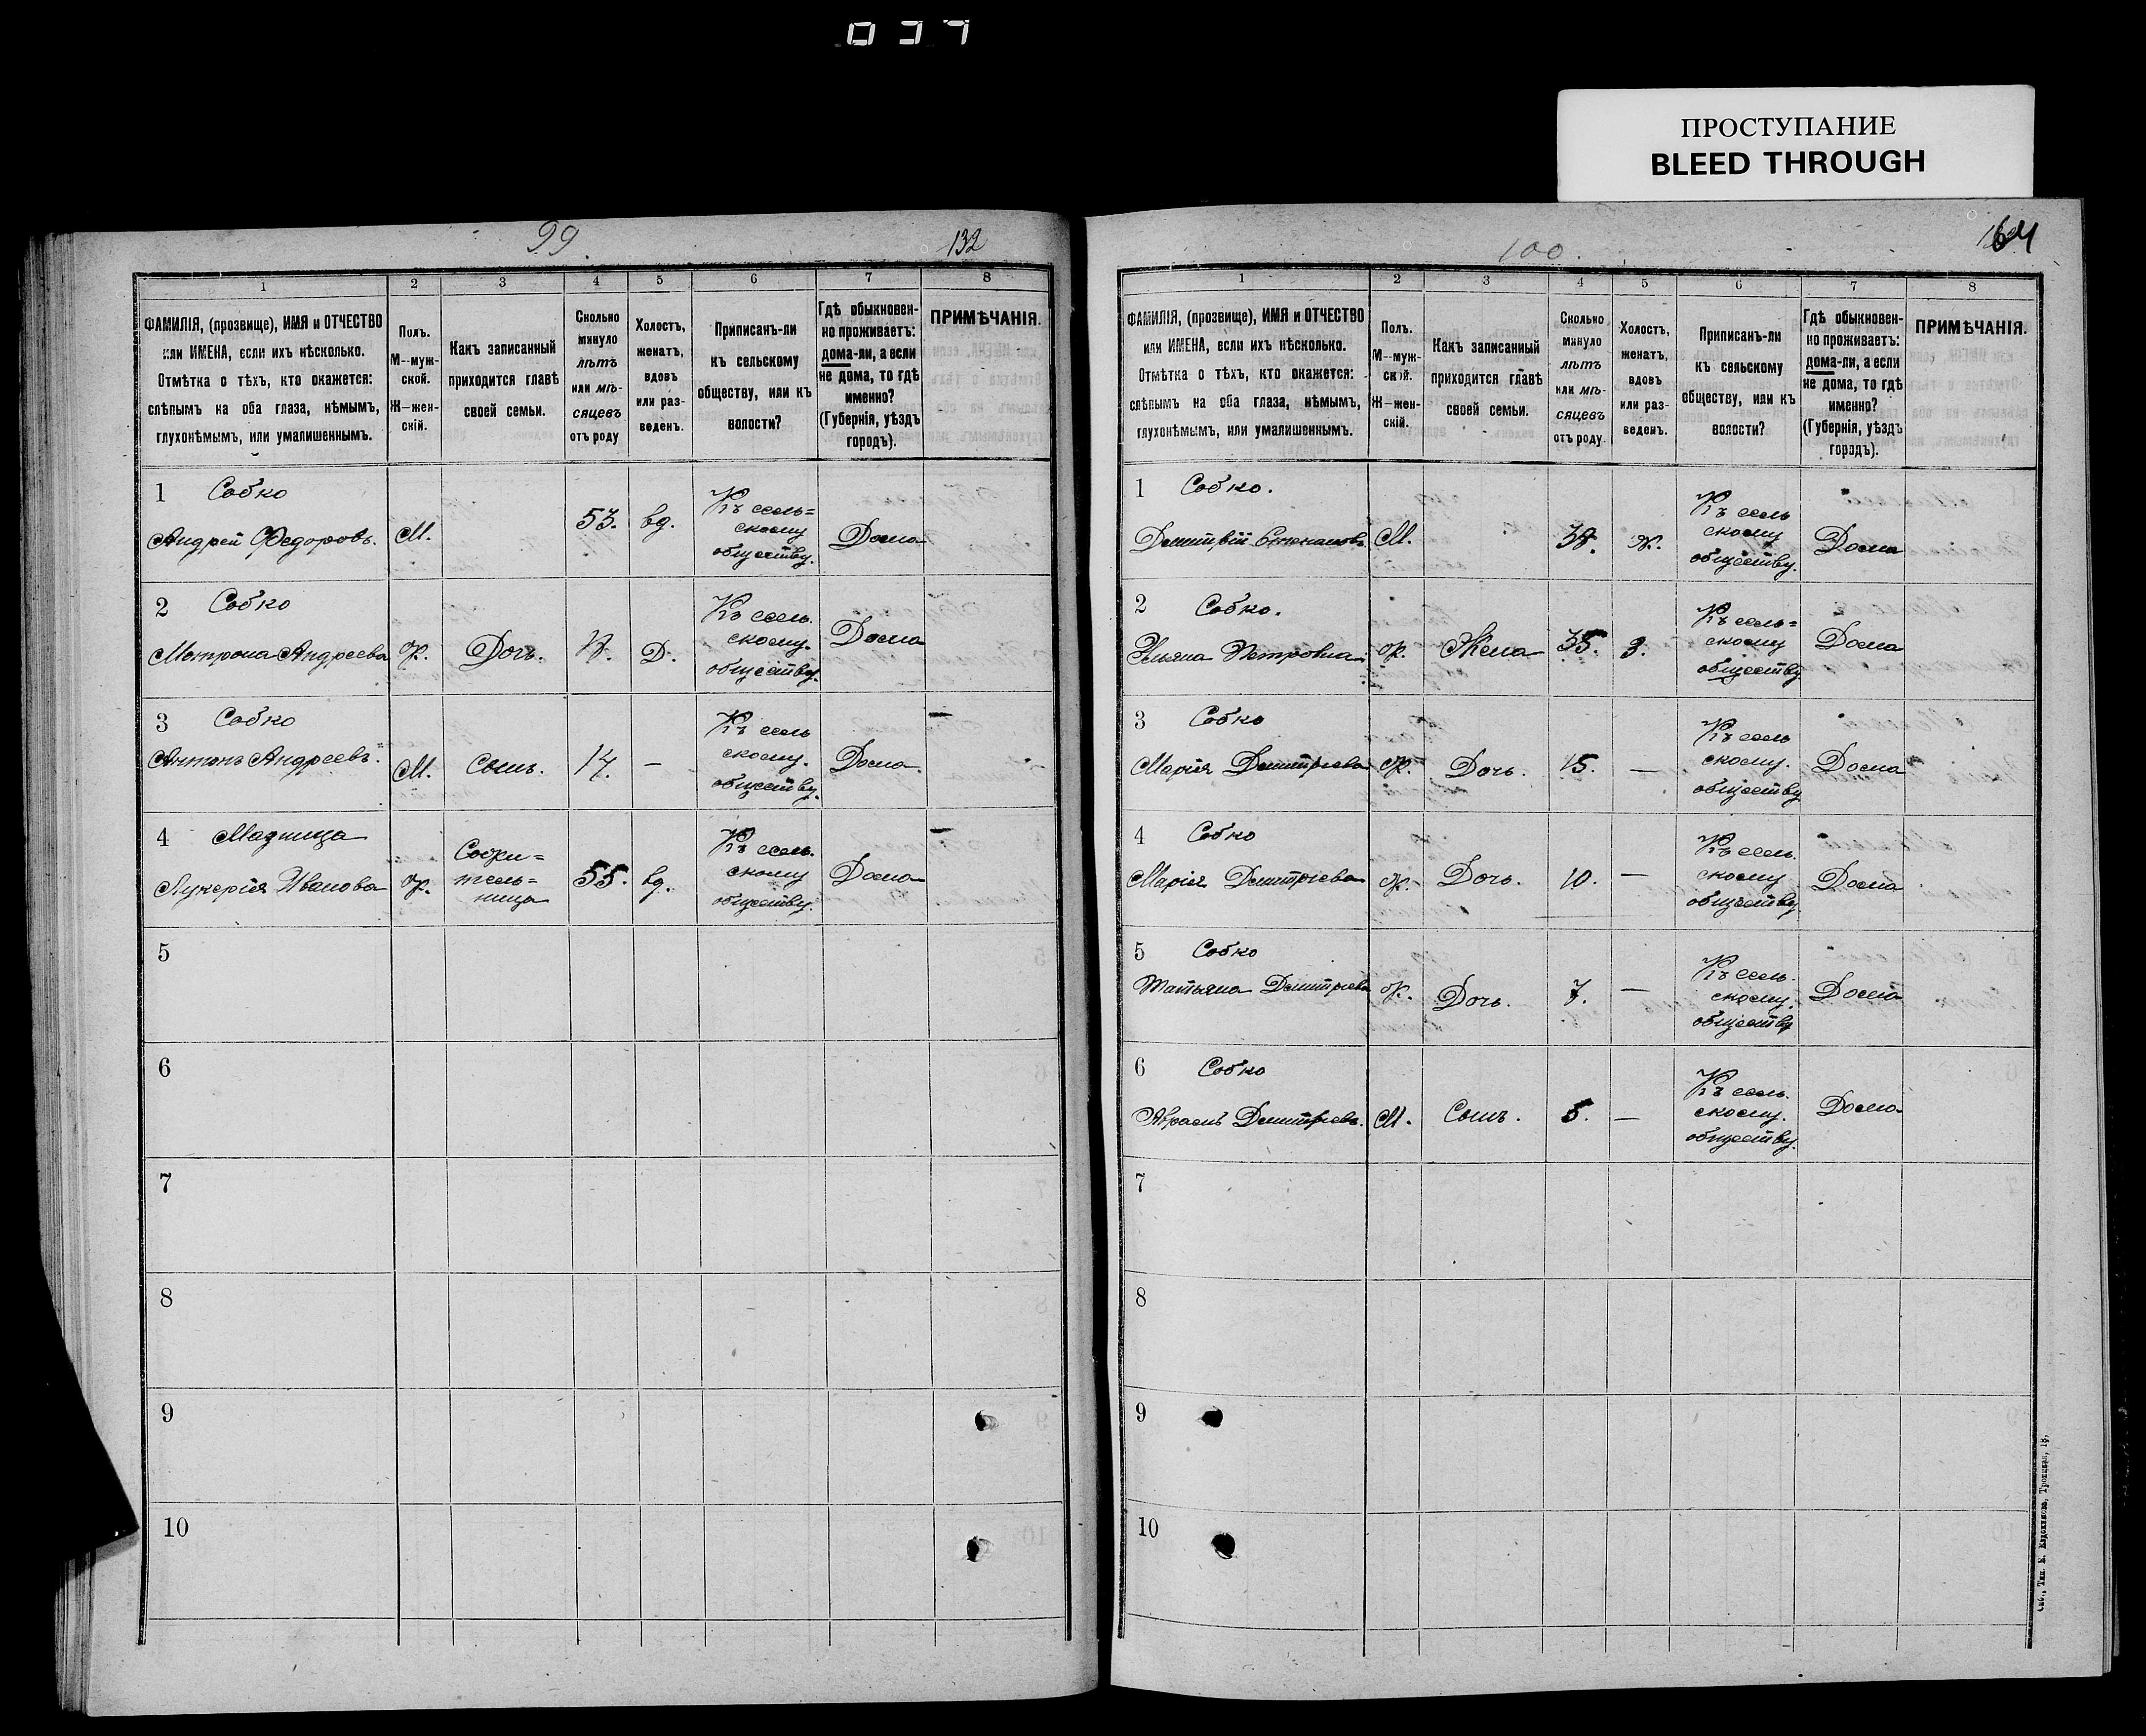 037
ПРОСТУПАНИЕ
BLEED THROUGH
99
132
1 2 3 4 5 6 7 8
ФАМИЛІЯ, (прозвище), ИМЯ и ОТЧЕСТВО
или ИМЕНА, если ихъ нѣсколько.
Отмѣтка о тѣхъ, кто окажется:
слѣпымъ на оба глаза, нѣмымъ,
глухонѣмымъ, или умалишеннымъ.
Полъ.
М—муж-
ской.
Ж—жен-
скій.
Какъ записанный
приходится главѣ
своей семьи.
Сколько
минуло
лѣтъ
или мѣ-
сяцевъ
отъ роду
Холостъ,
женатъ,
вдовъ
или раз-
веденъ.
Приписанъ-ли
къ сельскому
обществу, или къ
волости?
Гдѣ обыкновен-
но проживаетъ:
дома-ли, а если
не дома, то гдѣ
именно?
(Губернія, уѣздъ
городъ).
ПРИМѢЧАНІЯ.
1 Собко
Андрей Федоровъ. М. 53. вд. Къ сель=
скому
обществу. Дома
2 Собко
Матрона Андреева Ж. Дочь. Д. Къ сель.
скому.
обществу. Дома
3 Собко
Антонъ Андреевъ. М. Сынъ. 14. — Къ сель
скому.
обществу. Дома.
4 Мазница
Лукерія Иванова Ж. Сожи=
тель=
ница 55. вд. Къ сель.
скому
обществу. Дома
5
6
7
8
9
10
100.
1 2 3 4 5 6 7 8
ФАМИЛІЯ, (прозвище), ИМЯ и ОТЧЕСТВО
или ИМЕНА, если ихъ нѣсколько.
Отмѣтка о тѣхъ, кто окажется:
слѣпымъ на оба глаза, нѣмымъ,
глухонѣмымъ, или умалишеннымъ.
Полъ.
М—муж-
ской.
Ж—жен-
скій.
Какъ записанный
приходится главѣ
своей семьи.
Сколько
минуло
лѣтъ
или мѣ-
сяцевъ
отъ роду.
Холостъ,
женатъ,
вдовъ
или раз-
веденъ.
Приписанъ-ли
къ сельскому
обществу, или къ
волости?
Гдѣ обыкновен-
но проживаетъ:
дома-ли, а если
не дома, то гдѣ
именно?
(Губернія, уѣздъ
городъ).
ПРИМѢЧАНІЯ.
1 Собко.
Дмитрій Степановъ М. 38. Ж. Къ сель
скому
обществу. Дома
2 Собко.
Ульяна Петровна Ж. Жена 35. З. Къ сель=
скому
обществу Дома
3 Собко
Марія Дмитріева Ж. Дочь. 15. — Къ сель
скому.
обществу Дома
4 Собко
Марія Дмитріева Ж. Дочь. 10. — Къ сель.
скому
обществу. Дома
5 Собко
Татьяна Дмитріева Ж. Дочь. 7. — Къ сель.
скому.
обществу Дома
6 Собко
Абрамъ Дмитріевъ. М. Сынъ. 5. — Къ сель.
скому.
обществу. Дома
7
8
9
10